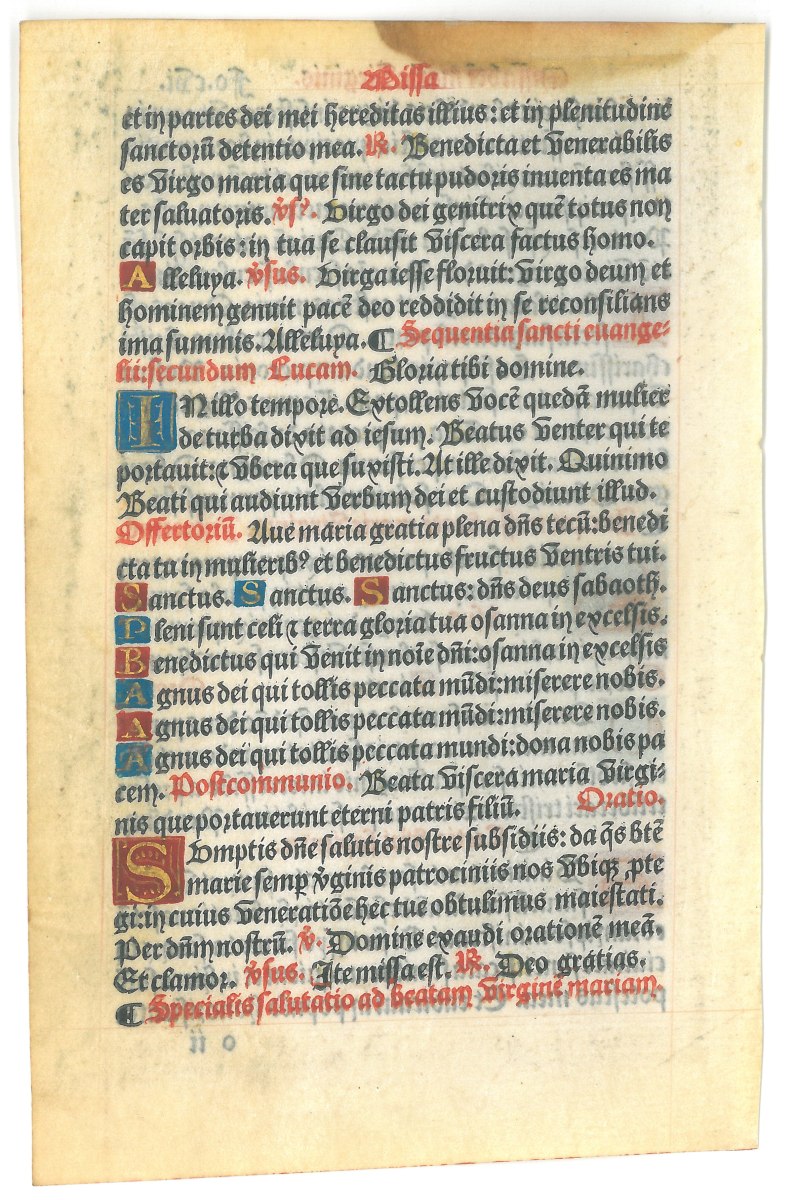 Missa
et in partes dei mei hereditas illius: et in plenitudine
sanctorū detentio mea. ℟. Benedicta et venerabilis
es virgo maria que sine tactu pudoris inuenta es ma
ter saluatoris. v̄sꝰ. Virgo dei genitrix quē totus non
capit orbis: in tua se clausit viscera factus homo.
Alleluya. v̄sus. Virga iesse floruit: virgo deum et
hominem genuit pacē deo reddidit in se reconsilians
ima summis. Alleluya. ¶ Sequentia sancti euange-
lii: secundum Lucam. Gloria tibi domine.
IN illo tempore. Extollens vocē quedā mulier
de turba dixit ad iesum. Beatus venter qui te
portauit: ⁊ vbera que suxisti. At ille dixit. Quinimo
Beati qui audiunt verbum dei et custodiunt illud.
Offertoriū. Aue maria gratia plena dn̄s tecū: benedi
cta tu in mulieribꝰ et benedictus fructus ventris tui.
Sanctus. Sanctus. Sanctus: dn̄s deus sabaoth.
Pleni sunt celi ⁊ terra gloria tua osanna in excelsis.
Benedictus qui venit in noīe dn̄i: osanna in excelsis
Agnus dei qui tollis peccata mūdi: miserere nobis.
Agnus dei qui tollis peccata mūdi: miserere nobis.
Agnus dei qui tollis peccata mundi: dona nobis pa
cem. Postcommunio. Beata viscera maria virgi-
nis que portauerunt eterni patris filiū. Oratio.
Sumptis dn̄e salutis nostre subsidiis: da q̄s btē
marie semꝑ v̄ginis patrociniis nos vbiqꝫ ꝓte
gi: in cuius veneratiōe hec tue obtulimus maiestati.
Per dn̄m nostrū. v̄. Domine exaudi orationē meā.
Et clamor. v̄sus. Ite missa est. ℟. Deo gratias.
¶ Specialis salutatio ad beatam virginē mariam.